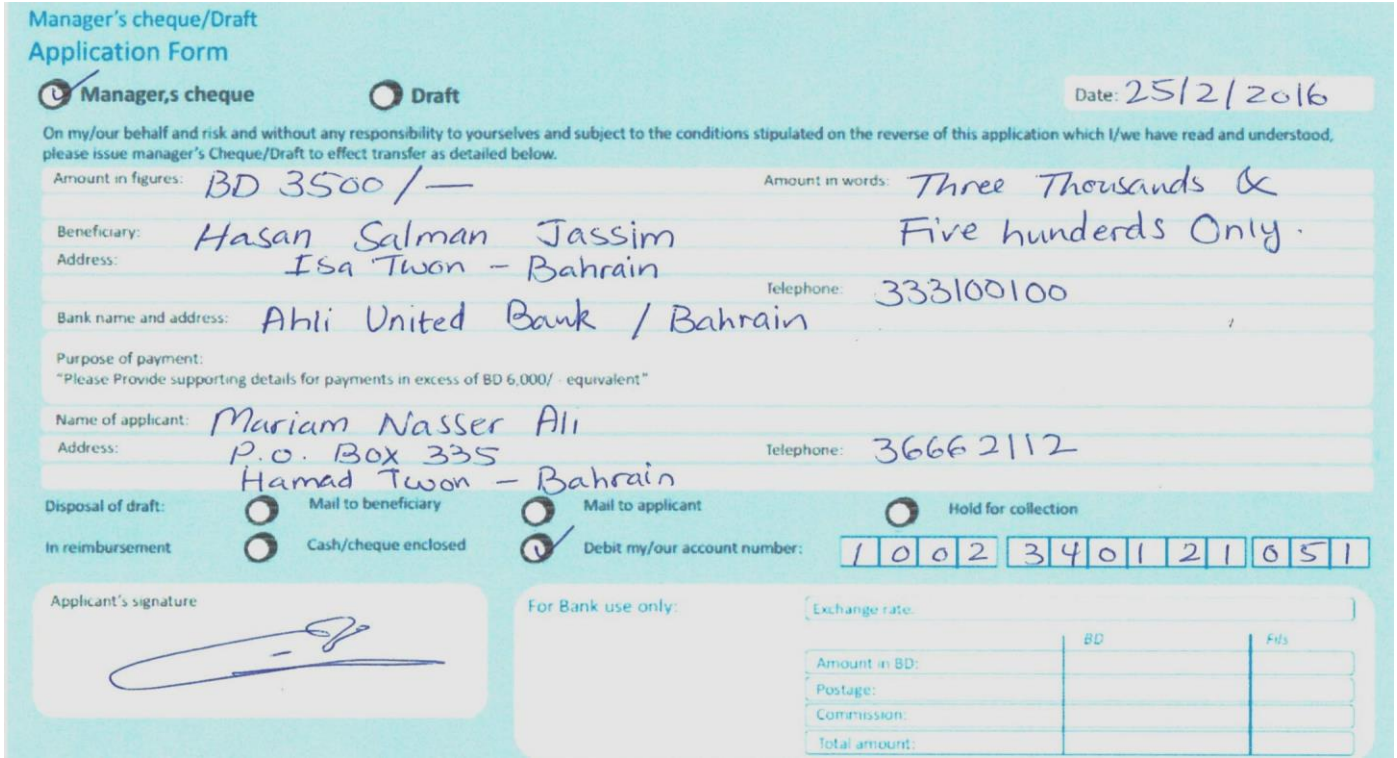 Manager's cheque/Draft
Application Form
Manager,s cheque Draft Date: 25/2/2016
On my/our behalf and risk and without any responsibility to yourselves and subject to the conditions stipulated on the reverse of this application which I/we have read and understood,
please issue manager's Cheque/Draft to effect transfer as detailed below.
Amount in figures: BD 3500/— Amount in words: Three Thousands &
Beneficiary: Hasan Salman Jassim Five hunderds Only.
Address: Isa Twon - Bahrain
Telephone: 333100100
Bank name and address: Ahli United Bank / Bahrain
Purpose of payment:
"Please Provide supporting details for payments in excess of BD 6,000/ - equivalent"
Name of applicant: Mariam Nasser Ali
Address: P.O. Box 335 Telephone: 36662112
Hamad Twon - Bahrain
Disposal of draft: Mail to beneficiary Mail to applicant Hold for collection
In reimbursement Cash/cheque enclosed Debit my/our account number: 1002 340121 051
Applicant's signature For Bank use only: Exchange rate:
BD Fils
Amount in BD:
Postage:
Commission:
Total amount: